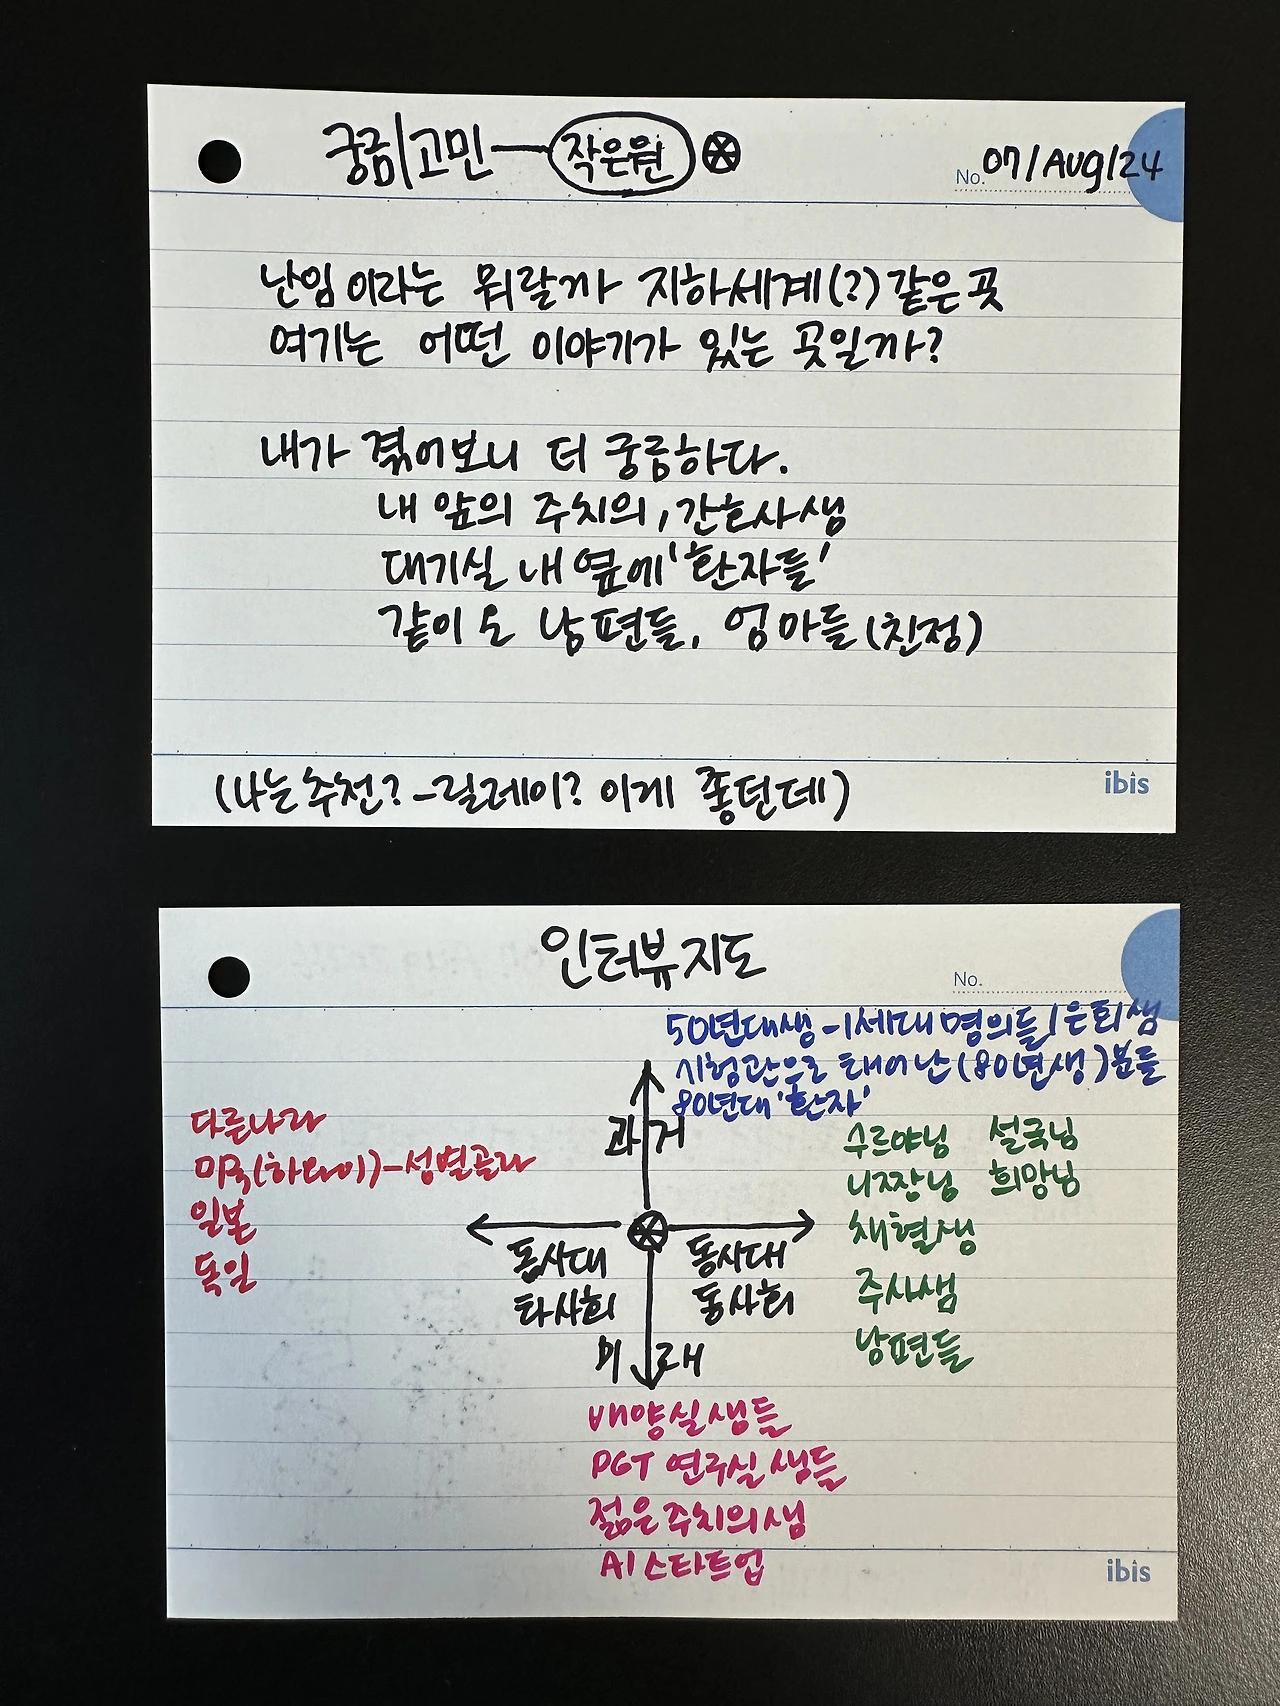 궁금/고민 — 작은원
No. 07/Aug/24
난임이라는 뭐랄까 지하세계(?) 같은 곳
여기는 어떤 이야기가 있는 곳일까?
내가 겪어보니 더 궁금하다.
내 앞의 주치의, 간호사샘
대기실 내 옆에 '환자들'
같이 온 남편들, 엄마들(친정)
(나는 추천? - 릴레이? 이게 좋던데)
ibis
인터뷰지도
No.
50년대생 - 1세대 명의들/은퇴샘
시험관으로 태어난 (80년생)분들
80년대 '환자'
과거
다른나라
미국(하와이) - 성별골라
일본
독일
수르야님 설국님
니조장님 희망님
채혈샘
주사샘
남편들
동시대
타사회
동시대
동사회
미래
배양실샘들
PGT 연구실샘들
젊은주치의샘
AI스타트업
ibis